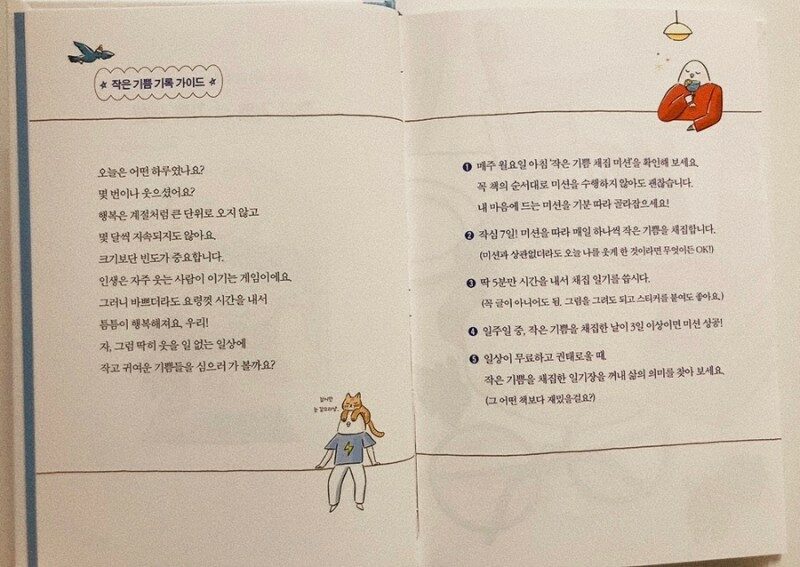 작은 기쁨 기록 가이드
오늘은 어떤 하루였나요?
몇 번이나 웃으셨어요?
행복은 계절처럼 큰 단위로 오지 않고
몇 달씩 지속되지도 않아요.
크기보단 빈도가 중요합니다.
인생은 자주 웃는 사람이 이기는 게임이에요.
그러니 바쁘더라도 요령껏 시간을 내서
틈틈이 행복해져요. 우리!
자, 그럼 딱히 웃을 일 없는 일상에
작고 귀여운 기쁨들을 심으러 가 볼까요?
❶ 매주 월요일 아침 '작은 기쁨 채집 미션'을 확인해 보세요.
꼭 책의 순서대로 미션을 수행하지 않아도 괜찮습니다.
내 마음에 드는 미션을 기분 따라 골라잡으세요!
❷ 작심 7일! 미션을 따라 매일 하나씩 작은 기쁨을 채집합니다.
(미션과 상관없더라도 오늘 나를 웃게 한 것이라면 무엇이든 OK!)
❸ 딱 5분만 시간을 내서 채집 일기를 씁시다.
(꼭 글이 아니어도 됨. 그림을 그려도 되고 스티커를 붙여도 좋아요.)
❹ 일주일 중, 작은 기쁨을 채집한 날이 3일 이상이면 미션 성공!
❺ 일상이 무료하고 권태로울 때,
작은 기쁨을 채집한 일기장을 꺼내 삶의 의미를 찾아 보세요.
(그 어떤 책보다 재밌을걸요?)